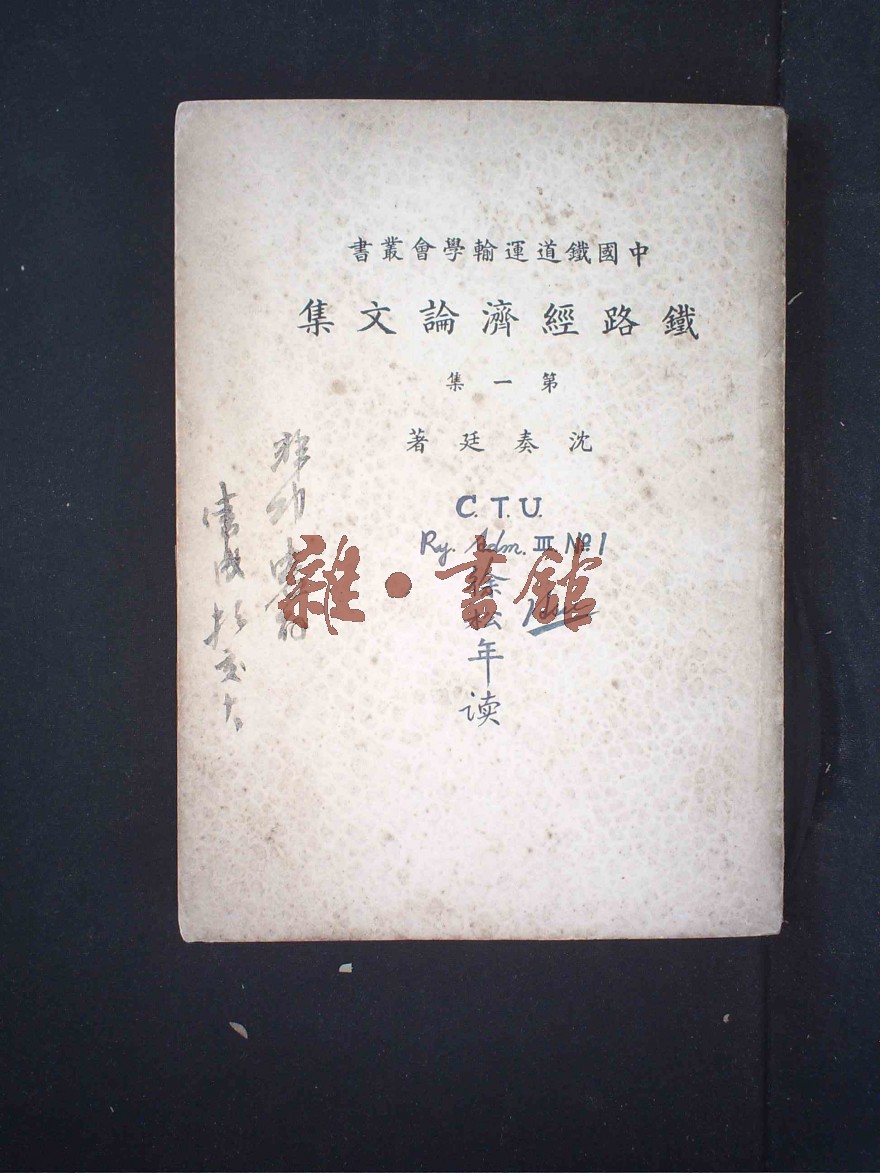 中國鐵道運輸學會叢書
鐵路經濟論文集
第一集
沈奏廷著
C.T.U.
Ry. Adm. III No 1
徐松年读
雜·書館